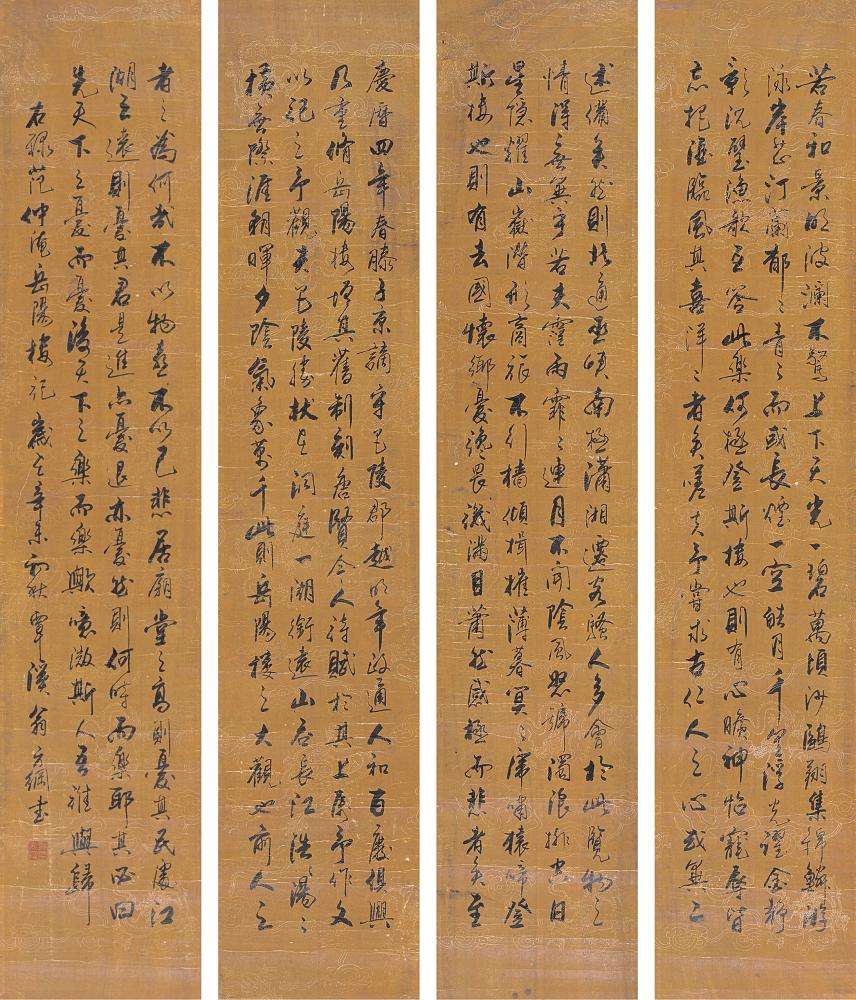 慶曆四年春滕子京謫守巴陵郡越明年政通人和百廢俱興
乃重脩岳陽樓增其舊制刻唐賢今人詩賦於其上屬予作文
以記之予觀夫巴陵勝狀在洞庭一湖銜遠山吞長江浩〻湯〻
橫無際涯朝暉夕陰氣象萬千此則岳陽樓之大觀也前人之
述備矣然則北通巫峽南極瀟湘遷客騷人多會於此覽物之
情得無異乎若夫霪雨霏〻連月不開陰風怒號濁浪排空日
星隱耀山嶽潛形商旅不行檣傾楫摧薄暮冥〻虎嘯猿啼登
斯樓也則有去國懷鄉憂讒畏譏滿目蕭然感極而悲者矣至
若春和景明波瀾不驚上下天光一碧萬頃沙鷗翔集錦鱗游
泳岸芷汀蘭郁〻青〻而或長煙一空皓月千里浮光躍金靜
影沉璧漁歌互答此樂何極登斯樓也則有心曠神怡寵辱皆
忘把酒臨風其喜洋〻者矣嗟夫予嘗求古仁人之心或異二
者之為何哉不以物喜不以己悲居廟堂之高則憂其民處江
湖之遠則憂其君是進亦憂退亦憂然則何時而樂耶其必曰
先天下之憂而憂後天下之樂而樂歟噫微斯人吾誰與歸
右錄范仲淹岳陽樓記歲在辛未初秋覃溪翁方綱書